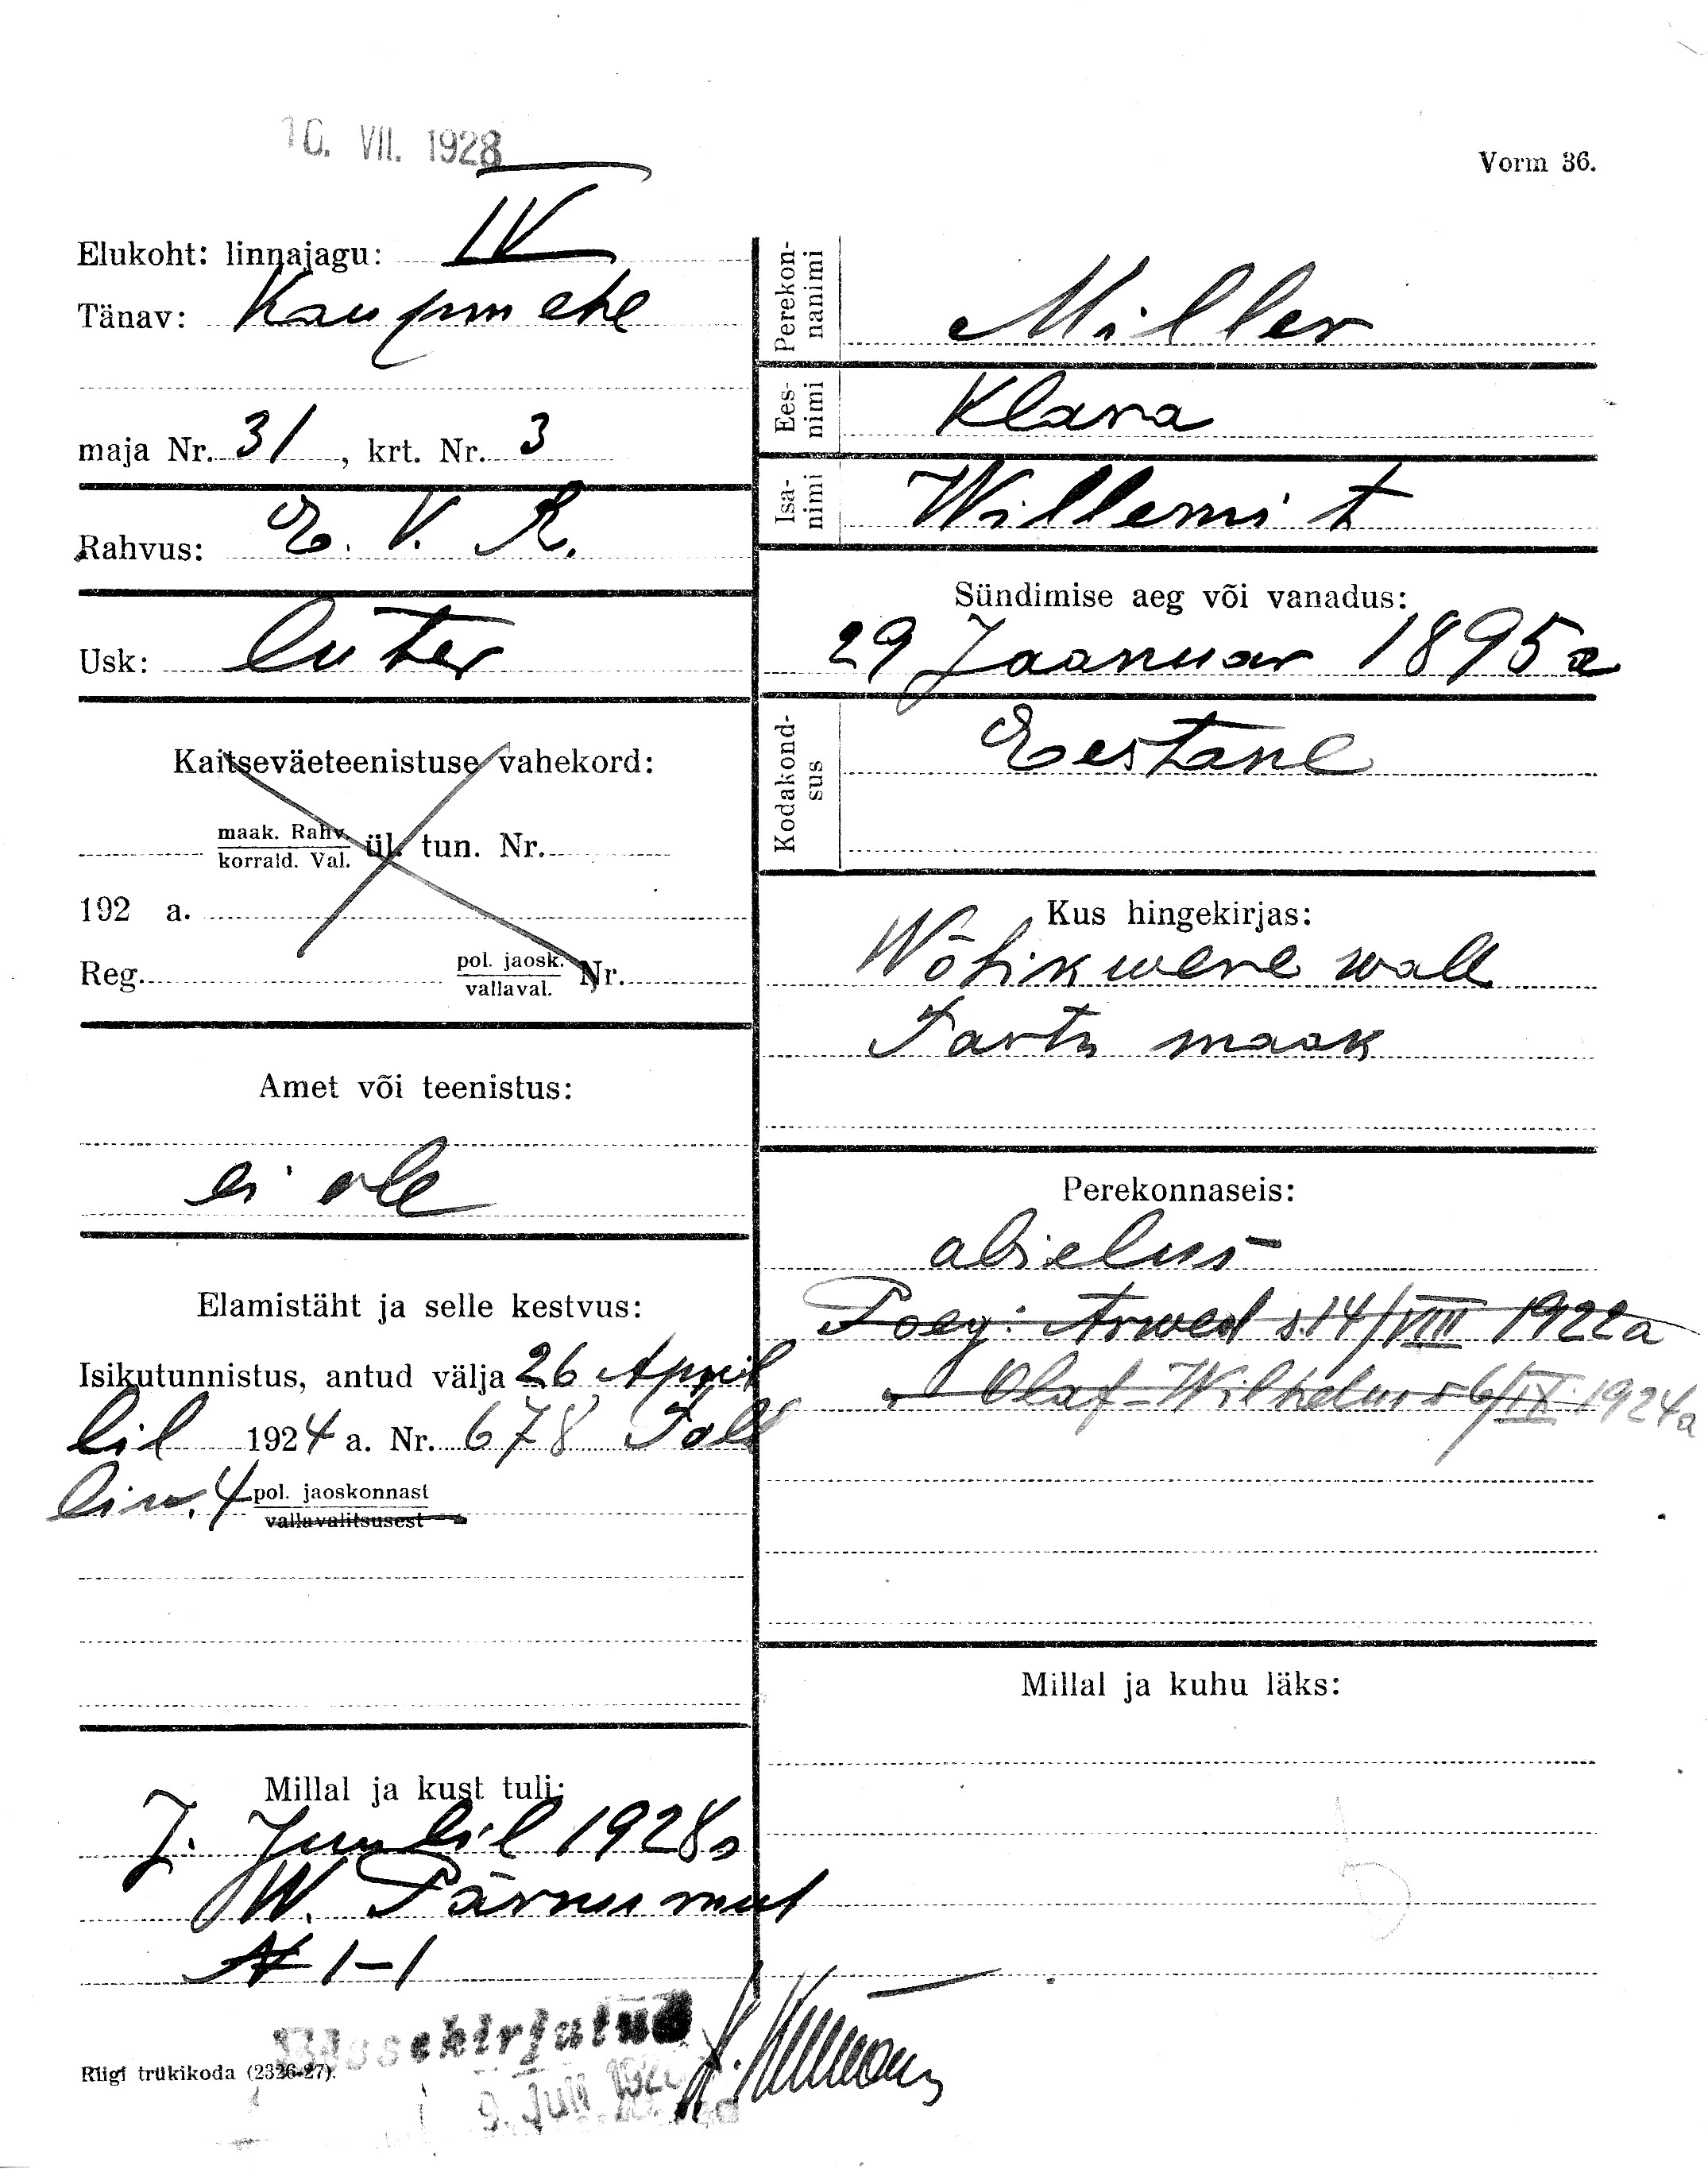 10. VII. 1928
Vorm 36.
Elukoht: linnajagu: IV
Tänav: Kaupmehe
maja Nr. 31, krt. Nr. 3
Rahvus: E. V. R.
Usk: luter
Kaitseväeteenistuse vahekord:
maak. Rahv.
korrald. Val. ül. tun. Nr.
192 a.
Reg. pol. jaosk. Nr.
vallaval.
Amet või teenistus:
ei ole
Elamistäht ja selle kestvus:
Isikutunnistus, antud välja 26 April
lil 1924 a. Nr. 678 Tall
lin. 4 pol. jaoskonnast
vallavalitsusest
Millal ja kust tuli:
Juulil 1928a
W. Pärnu mnt
N 1-1
Sissekirjutud
9. Juli 192
Riigi trükikoda (2326-27).
Perekon-
nanimi
Miller
Ees-
nimi
Klara
Isa-
nimi
Willemi t
Sündimise aeg või vanadus:
29 Jaanuar 1895 a
Kodakond-
sus
Eestane
Kus hingekirjas:
Wõtikwere wall
Tartu maak
Perekonnaseis:
abielus
Poeg: Arwed s. 14/VIII 1922a
" Olaf-Wilhelm s 6/IX 1924a
Millal ja kuhu läks: